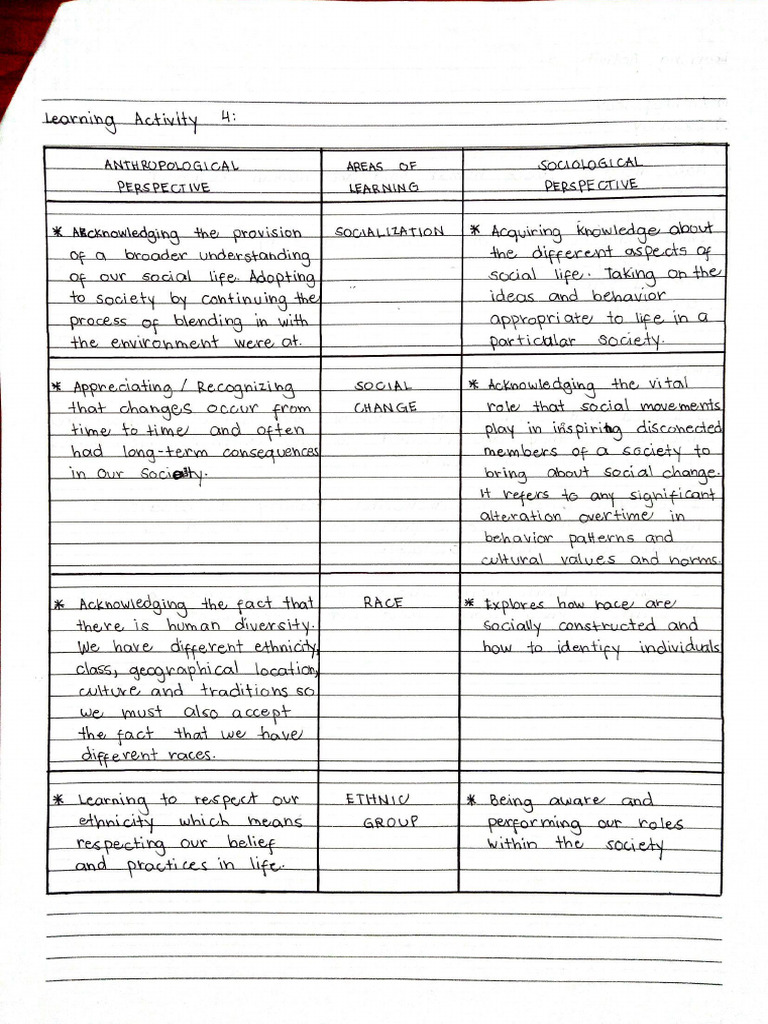 Learning Activity 4:
ANTHROPOLOGICAL
PERSPECTIVE
AREAS OF
LEARNING
SOCIOLOGICAL
PERSPECTIVE
* Acknowledging the provision
of a broader understanding
of our social life. Adopting
to society by continuing the
process of blending in with
the environment were at.
SOCIALIZATION
* Acquiring knowledge about
the different aspects of
social life. Taking on the
ideas and behavior
appropriate to life in a
particular society.
* Appreciating / Recognizing
that changes occur from
time to time and often
had long-term consequences
in our society.
SOCIAL
CHANGE
* Acknowledging the vital
role that social movements
play in inspiring disconected
members of a society to
bring about social change.
It refers to any significant
alteration overtime in
behavior patterns and
cultural values and norms.
* Acknowledging the fact that
there is human diversity.
We have different ethnicity,
class, geographical location,
culture and traditions so
we must also accept
the fact that we have
different races.
RACE
* Explores how race are
socially constructed and
how to identify individuals
* Learning to respect our
ethnicity which means
respecting our belief
and practices in life.
ETHNIC
GROUP
* Being aware and
performing our roles
within the society